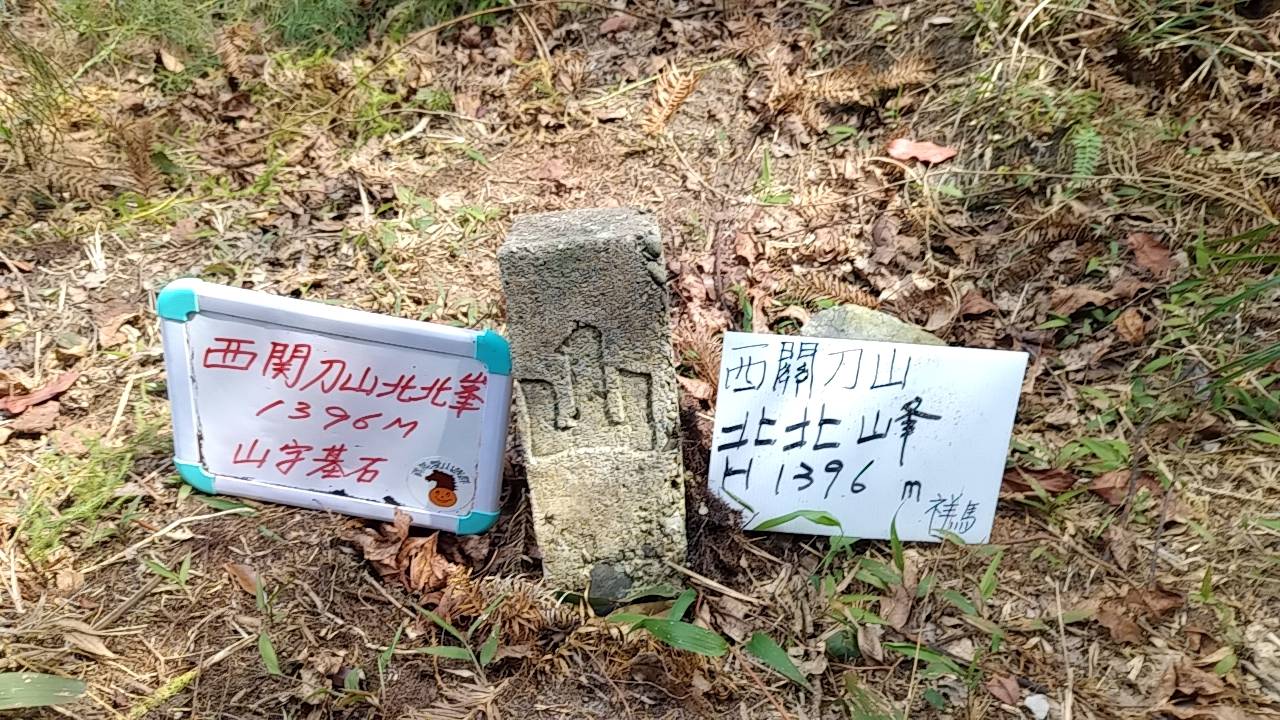 西関刀山北北峯
1396M
山字基石
山
西關刀山
北北山峰
H 1396 m
祥馬